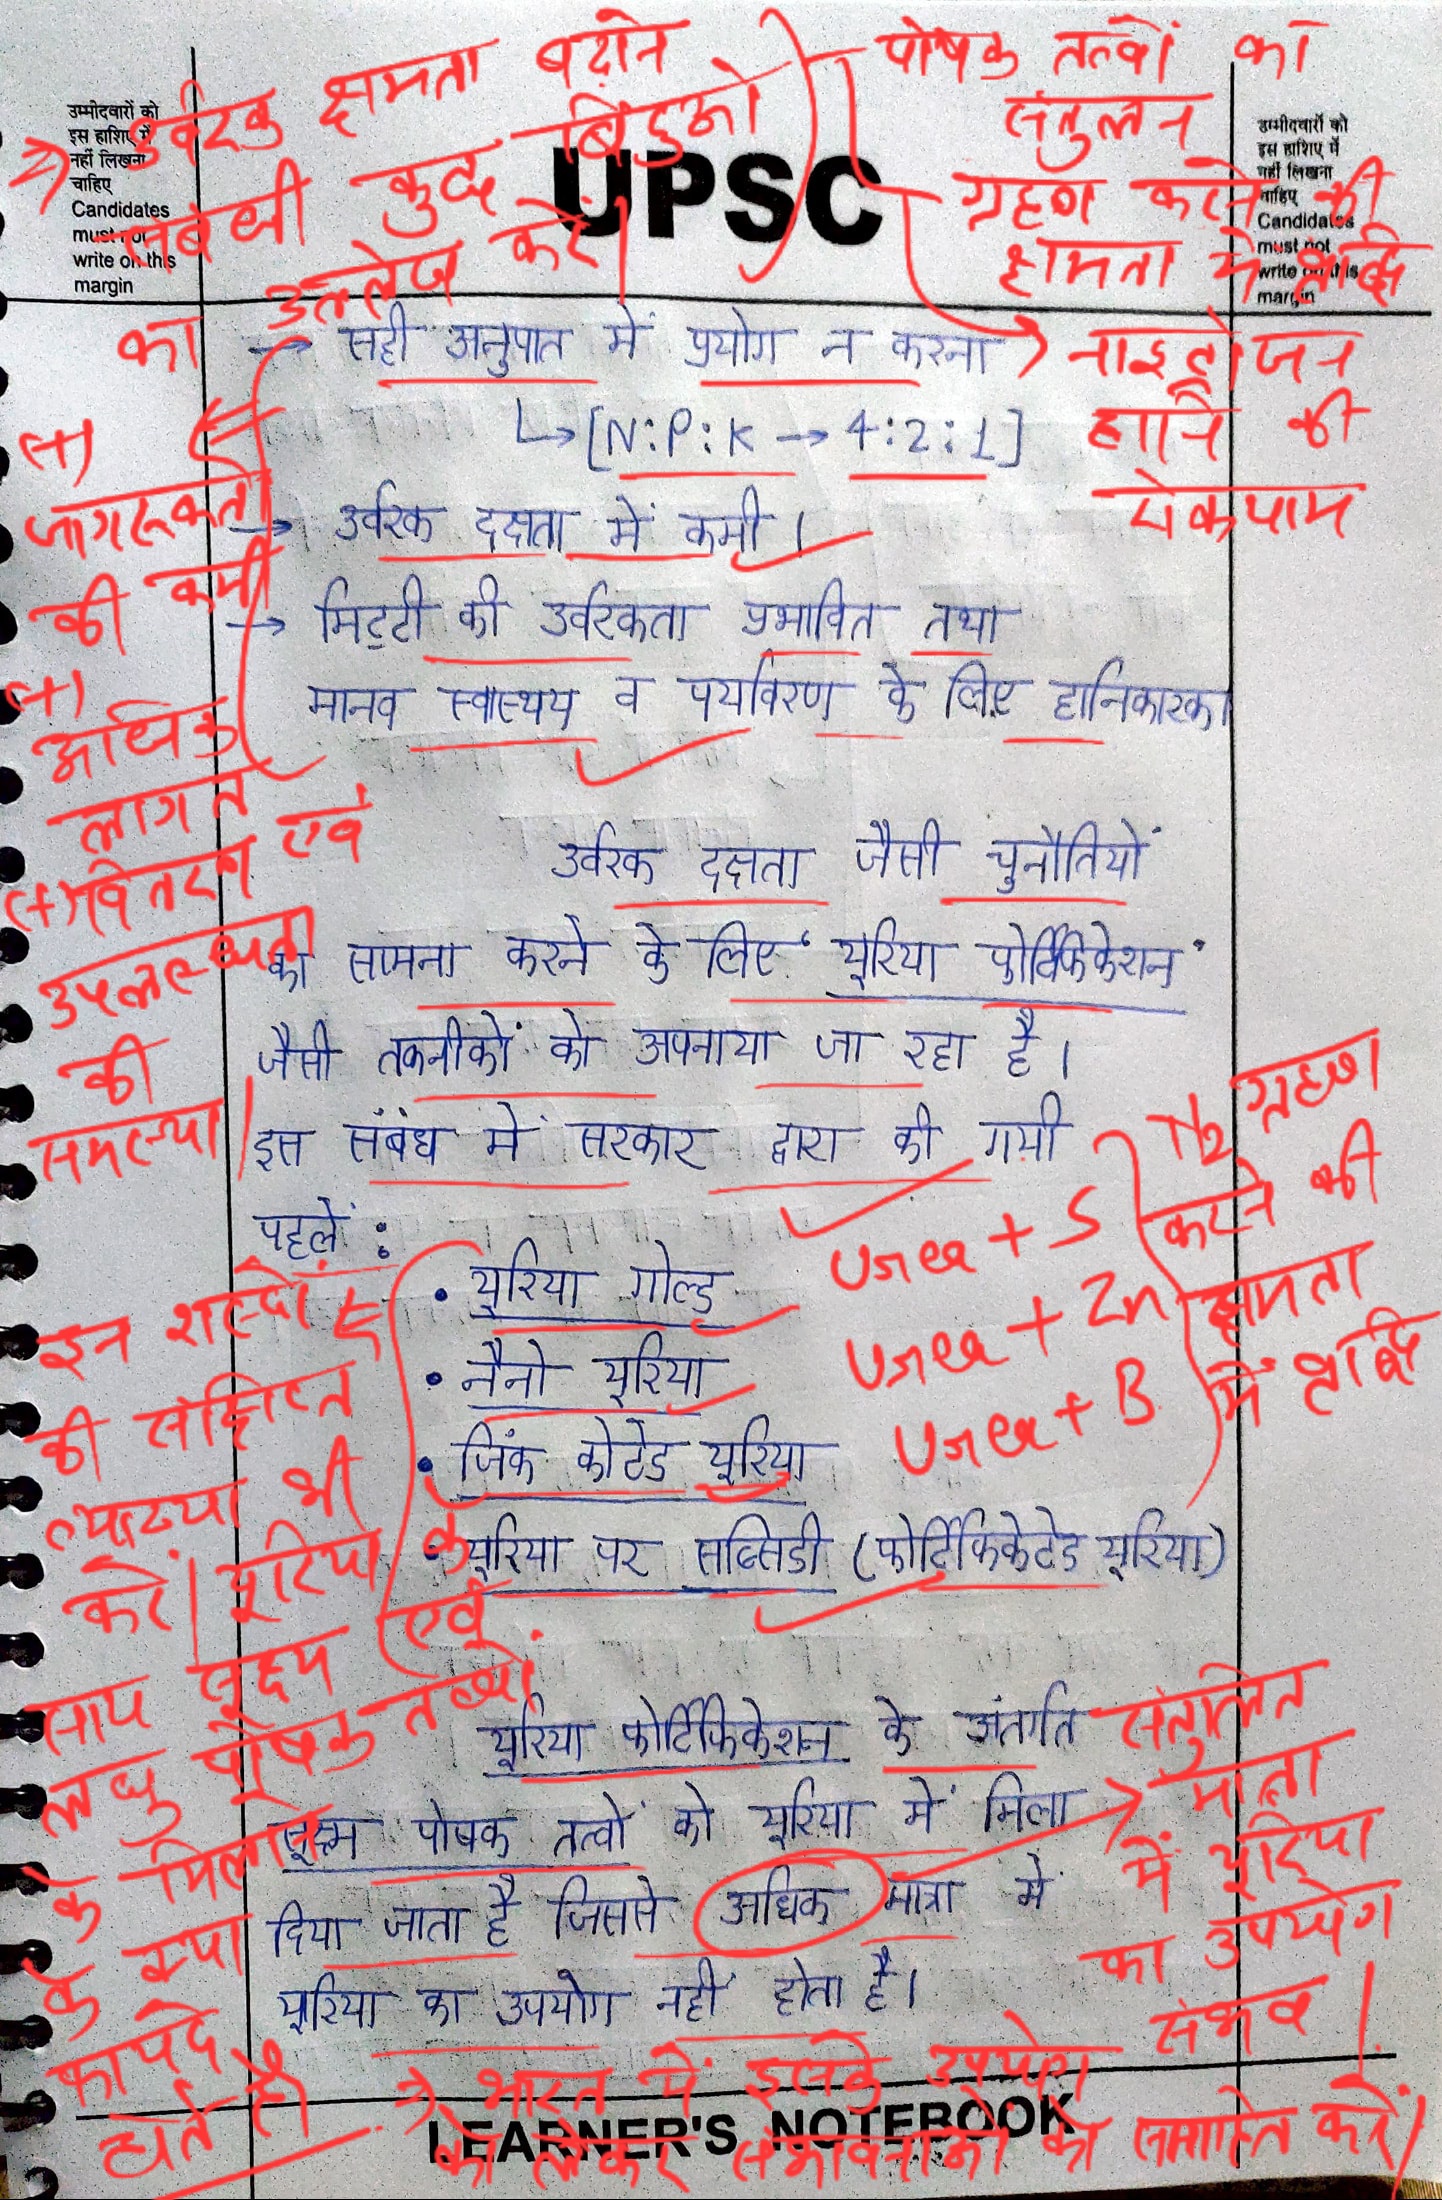 उर्वरक क्षमता बढ़ाने
संबंधी कुछ बिंदुओं
का उल्लेख करें।
पोषक तत्वों का
संतुलन
ग्रहण करने की
क्षमता में वृद्धि
नाइट्रोजन
हानि की
रोकथाम
उम्मीदवारों को
इस हाशिए में
नहीं लिखना
चाहिए
Candidates
must not
write on this
margin
UPSC
उम्मीदवारों को
इस हाशिए में
नहीं लिखना
चाहिए
Candidates
must not
write on this
margin
→ सही अनुपात में प्रयोग न करना
↳ [N:P:K → 4:2:1]
→ उर्वरक दक्षता में कमी।
→ मिट्टी की उर्वरकता प्रभावित तथा
मानव स्वास्थय व पर्यावरण के लिए हानिकारक।
(+)
जागरूकता
की कमी
(+)
अधिक
लागत
(+) वितरण एवं
उपलब्धता
की
समस्या।
उर्वरक दक्षता जैसी चुनौतियों
का सामना करने के लिए 'यूरिया फोर्टिफिकेशन'
जैसी तकनीकों को अपनाया जा रहा है।
इस संबंध में सरकार द्वारा की गयी
पहलें :
• यूरिया गोल्ड
• नैनो यूरिया
• जिंक कोटेड यूरिया
• यूरिया पर सब्सिडी (फोर्टिफिकेटेड यूरिया)
Urea + S
Urea + Zn
Urea + B
N2 ग्रहण
करने की
क्षमता
में वृद्धि
इन शब्दों
की संक्षिप्त
व्याख्या भी
करें। यूरिया के
साथ सूक्ष्म एवं
लघु पोषक तत्वों
के मिलाने
के क्या
फायदे
होते हैं।
यूरिया फोर्टिफिकेशन के अंतर्गत
सूक्ष्म पोषक तत्वों को यूरिया में मिला
दिया जाता है जिससे अधिक मात्रा में
यूरिया का उपयोग नहीं होता है।
संतुलित
मात्रा
में यूरिया
का उपयोग
संभव।
→ भारत में इसके उपयोग
को लेकर संभावनाओं को समाहित करें।
LEARNER'S NOTEBOOK